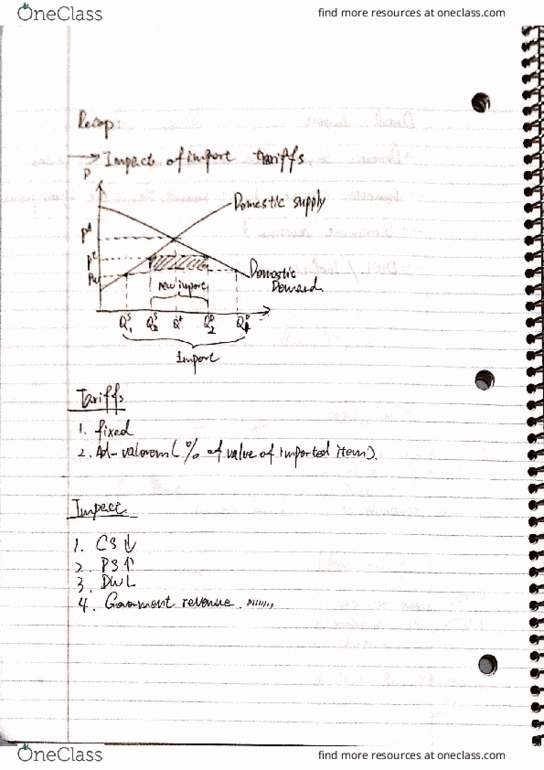 OneClass
find more resources at oneclass.com
Recap:
→ Impact of import tariffs
P
Domestic supply
P*
Pt
Pw
new import
Domestic
Demand
Q₁ˢ Q₂ˢ Q* Q₂ᴰ Q₁ᴰ
Import
Tariffs
1. fixed
2. Ad-valorem ( % of value of imported item).
Impact
1. CS ↓
2. PS ↑
3. DWL
4. Government revenue
OneClass
find more resources at oneclass.com